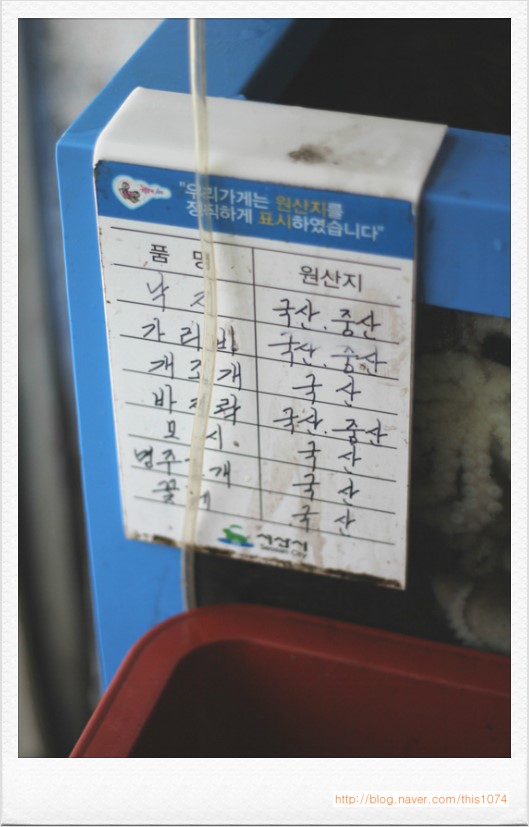 "우리가게는 원산지를
정직하게 표시하였습니다"
품 명 원산지
낙 지 국산. 중산
가 리 비 국산. 중산
개 조 개 국 산
바 지 락 국산. 중산
모 시. 국 산
명주 개 국 산
꽃 게 국 산
서산시
Seosan City
http://blog.naver.com/this1074